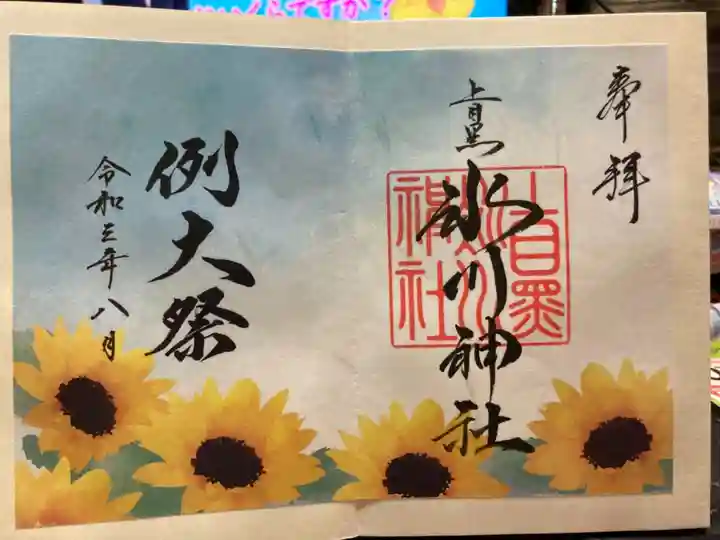 奉拝
上目黒
氷川神社
上目黒
氷川
神社
例大祭
令和三年八月
いくらですか?